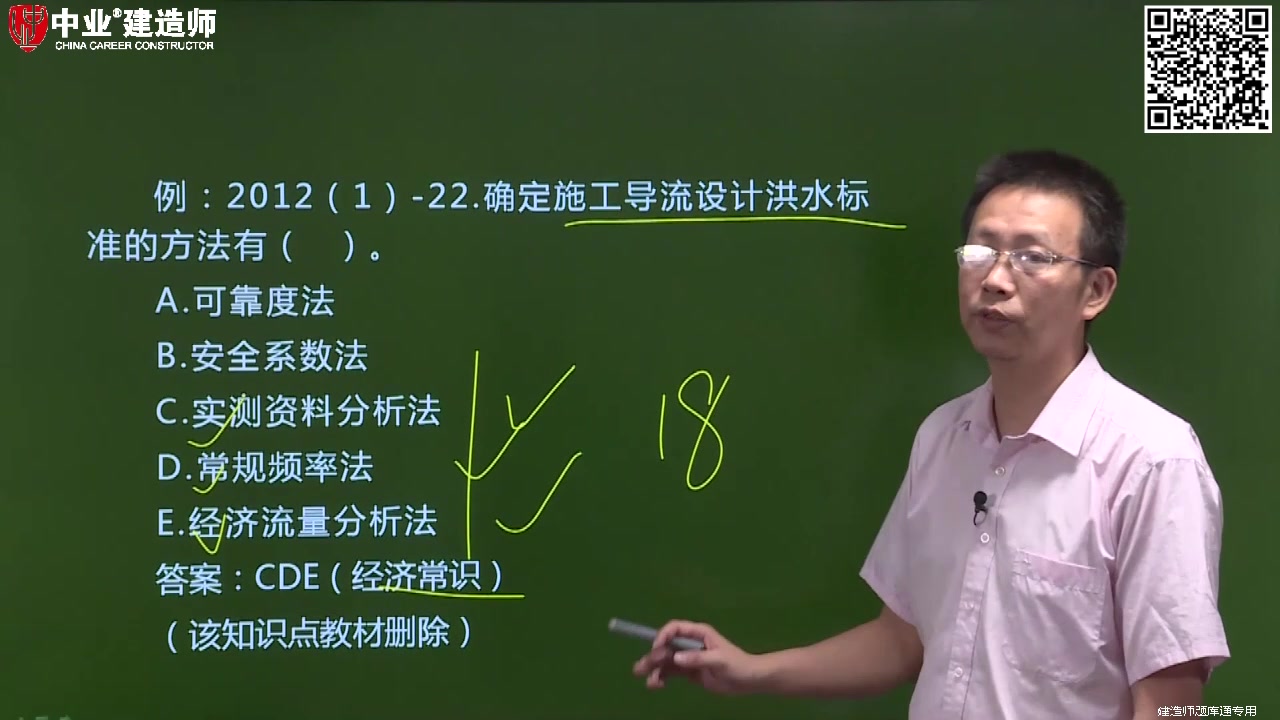 中业®建造师
CHINA CAREER CONSTRUCTOR
例：2012（1）-22.确定施工导流设计洪水标
准的方法有（ ）。
A.可靠度法
B.安全系数法
C.实测资料分析法
D.常规频率法
E.经济流量分析法
答案：CDE（经济常识）
（该知识点教材删除）
18
建造师题库通专用